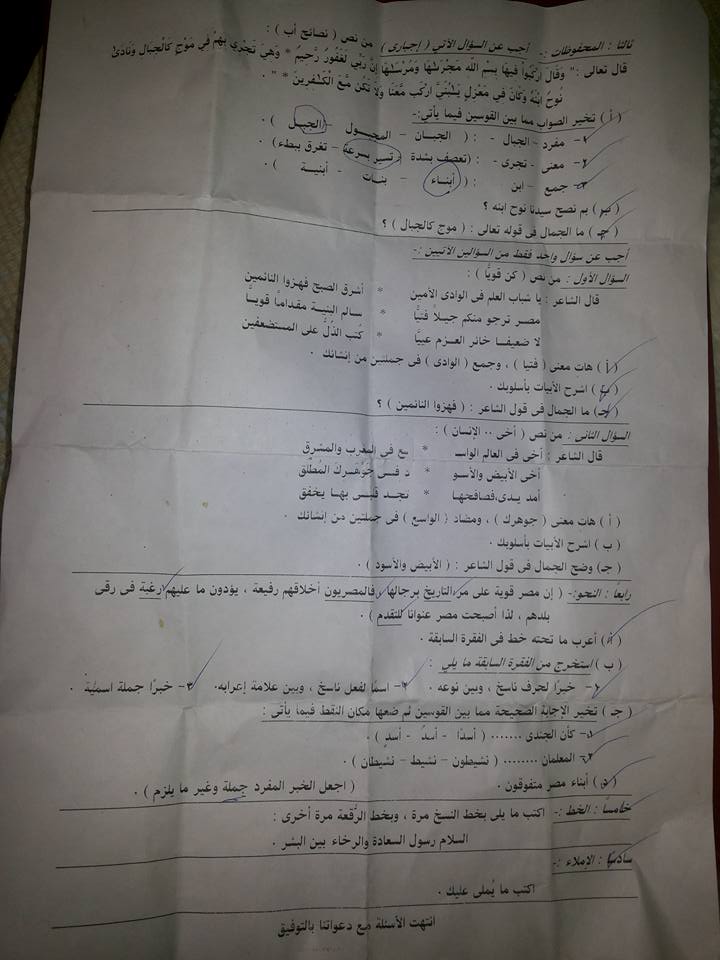 ثالثا : المحفوظات :- أجب عن السؤال الآتي ( إجبارى ) من نص ( نصائح أب ) :
قال تعالى :" وَقَالَ ارْكَبُوا فِيهَا بِسْمِ اللَّهِ مَجْرَىٰهَا وَمُرْسَىٰهَا إِنَّ رَبِّي لَغَفُورٌ رَّحِيمٌ * وَهِيَ تَجْرِي بِهِمْ فِي مَوْجٍ كَالْجِبَالِ وَنَادَىٰ
نُوحٌ ابْنَهُ وَكَانَ فِي مَعْزِلٍ يَٰبُنَيَّ ارْكَب مَّعَنَا وَلَا تَكُن مَّعَ الْكَٰفِرِينَ * " .
( أ ) تخير الصواب مما بين القوسين فيما يأتى:-
١- مفرد - الجبال - : ( الجبان - المجبول - الجبل ) .
٢- معنى - تجرى - : (تعصف بشدة - تسير بسرعة - تغرق ببطء) .
٣- جمع - ابن : ( أبناء - بنات - أبنية ) .
( ب ) بم نصح سيدنا نوح ابنه ؟
( جـ ) ما الجمال فى قوله تعالى : ( موج كالجبال ) ؟
أجب عن سؤال واحد فقط من السؤالين الآتيين :-
السؤال الأول : من نص ( كن قويًّا ) :
قال الشاعر : يا شباب العلم فى الوادى الأمين * أشرق الصبح فهزوا النائمين
مصر ترجو منكم جيلاً فتيًّا * سالم البنية مقدامًا قويًّا
لا ضعيفا خائر العزم عييًّا * كُتب الذُلُّ على المستضعفين
( أ ) هات معنى ( فتيا ) ، وجمع ( الوادى ) فى جملتين من إنشائك .
( ب ) اشرح الأبيات بأسلوبك .
( جـ ) ما الجمال فى قول الشاعر : ( فهزوا النائمين ) ؟
السؤال الثانى : من نص ( أخى .. الإنسان ) :
قال الشاعر : أخى فى العالم الواسـ * ـع فى المغرب والمشرق
أخى الأبيض والأسو * د فـى جوهرك المُطلق
أمد يـدى،فصافحها * تجـد قلبـى بهـا يخفق
( أ ) هات معنى ( جوهرك ) ، ومضاد ( الواسع ) فى جملتين من إنشائك .
( ب ) اشرح الأبيات بأسلوبك .
( جـ) وضح الجمال فى قول الشاعر : ( الأبيض والأسود ) .
رابعًا : النحو:- ( إن مصر قوية على مر التاريخ برجالها ، فالمصريون أخلاقهم رفيعة ، يؤدون ما عليهم رغبة فى رقى
بلدهم ، لذا أصبحت مصر عنوانا للتقدم ) .
( أ ) أعرب ما تحته خط فى الفقرة السابقة .
( ب ) استخرج من الفقرة السابقة ما يلي :
١- خبرًا لحرف ناسخ ، وبين نوعه . ٢- اسمًا لفعل ناسخ ، وبين علامة إعرابه. ٣- خبرًا جملة اسمية .
( جـ ) تخير الإجابة الصحيحة مما بين القوسين ثم ضعها مكان النقط فيما يأتى :
١- كأن الجندى ....... ( أسدًا - أسدٌ - أسدٍ ) .
٢- المعلمان ........ ( نشيطون - نشيط - نشيطان ) .
( د ) أبناء مصر متفوقون . ( اجعل الخبر المفرد جملة وغير ما يلزم ) .
خامسًا : الخط :- اكتب ما يلى بخط النسخ مرة ، وبخط الرقعة مرة أخرى :
السلام رسول السعادة والرخاء بين البشر .
سادسًا : الإملاء :-
اكتب ما يُملى عليك .
انتهت الأسئلة مع دعواتنا بالتوفيق